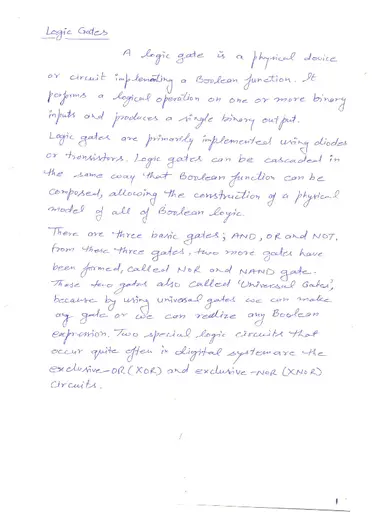 Logic Gates
A logic gate is a physical device
or circuit implementing a Boolean function. It
performs a logical operation on one or more binary
inputs and produces a single binary output.
Logic gates are primarily implemented using diodes
or transistors. Logic gates can be cascaded in
the same way that Boolean function can be
composed, allowing the construction of a physical
model of all of Boolean logic.
There are three basic gates; AND, OR and NOT.
From these three gates, two more gates have
been formed, called NOR and NAND gate.
These two gates also called 'Universal Gates',
because by using universal gates we can make
any gate or we can realize any Boolean
expression. Two special logic circuits that
occur quite often in digital system are the
exclusive-OR (XOR) and exclusive-NOR (XNOR)
circuits.
1